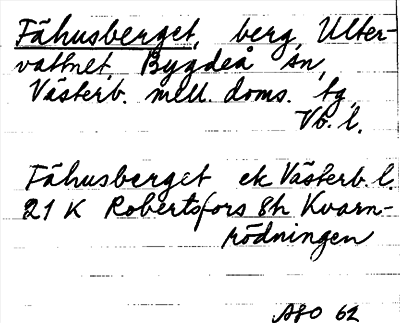 Fähusberget, berg, Ulter-
vattnet, Bygdeå sn,
Västerb. mell. doms. tg,
Vb. l.
Fähusberget ek Västerb. l.
21 K Robertsfors 8h Kvarn-
rödningen
ASO 62